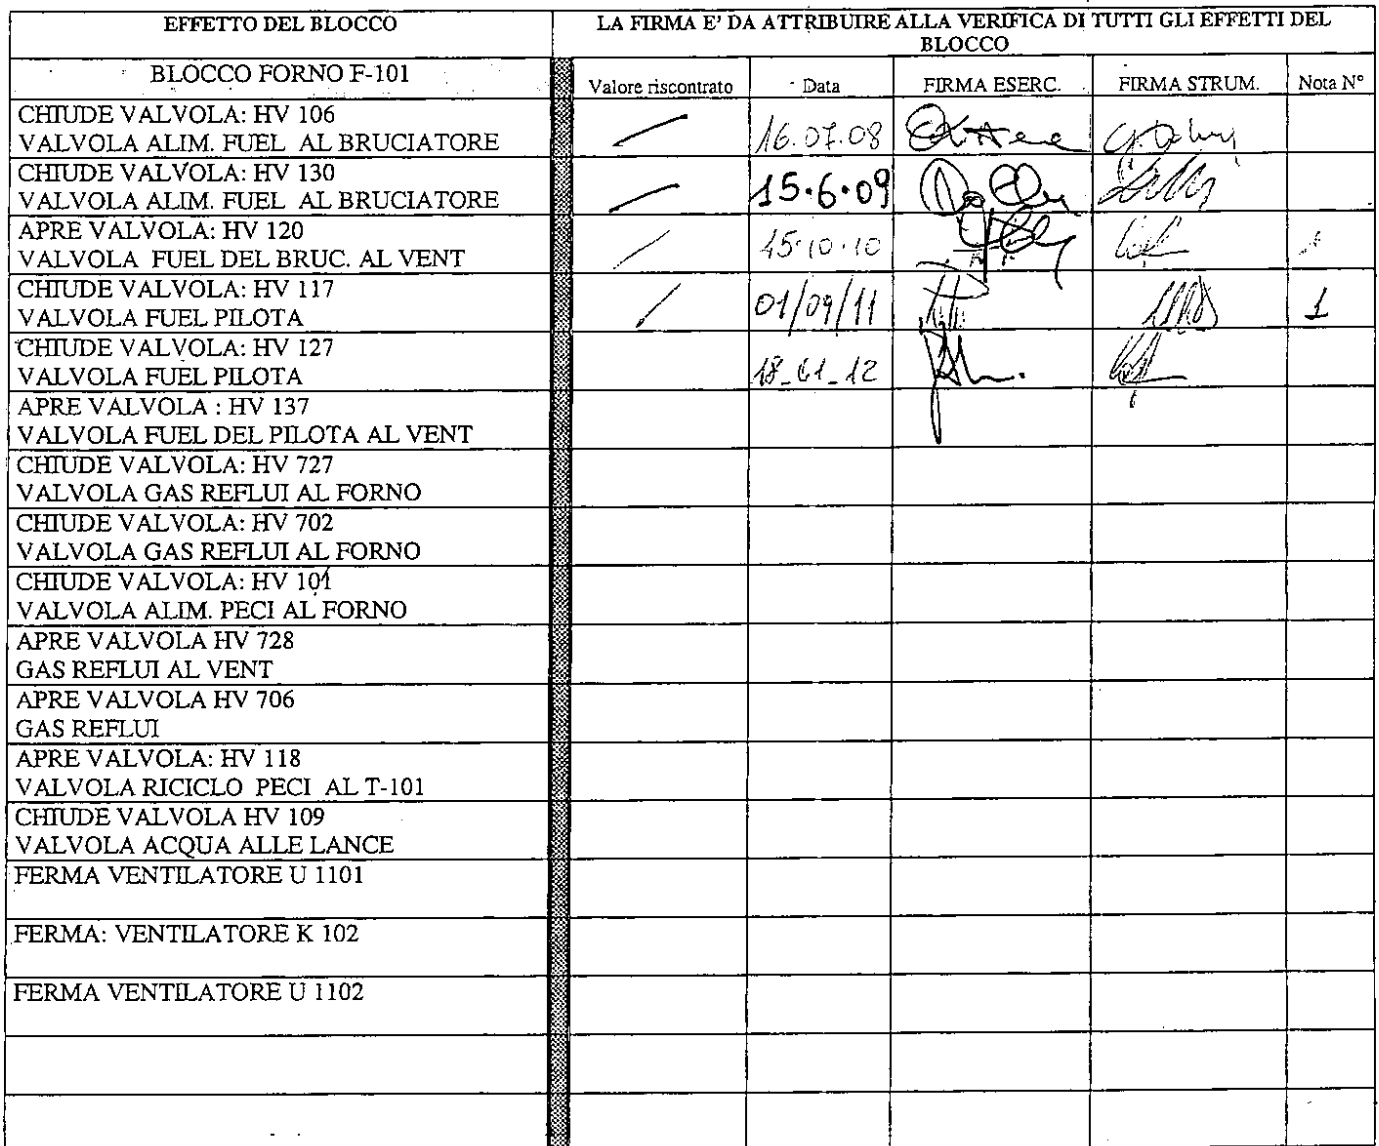 EFFETTO DEL BLOCCO
LA FIRMA E' DA ATTRIBUIRE ALLA VERIFICA DI TUTTI GLI EFFETTI DEL
BLOCCO
BLOCCO FORNO F-101
Valore riscontrato
Data
FIRMA ESERC.
FIRMA STRUM.
Nota N°
CHIUDE VALVOLA: HV 106
VALVOLA ALIM. FUEL AL BRUCIATORE
16.07.08
CHIUDE VALVOLA: HV 130
VALVOLA ALIM. FUEL AL BRUCIATORE
15.6.09
APRE VALVOLA: HV 120
VALVOLA FUEL DEL BRUC. AL VENT
15.10.10
CHIUDE VALVOLA: HV 117
VALVOLA FUEL PILOTA
01/09/11
1
CHIUDE VALVOLA: HV 127
VALVOLA FUEL PILOTA
18_01_12
APRE VALVOLA : HV 137
VALVOLA FUEL DEL PILOTA AL VENT
CHIUDE VALVOLA: HV 727
VALVOLA GAS REFLUI AL FORNO
CHIUDE VALVOLA: HV 702
VALVOLA GAS REFLUI AL FORNO
CHIUDE VALVOLA: HV 101
VALVOLA ALIM. PECI AL FORNO
APRE VALVOLA HV 728
GAS REFLUI AL VENT
APRE VALVOLA HV 706
GAS REFLUI
APRE VALVOLA: HV 118
VALVOLA RICICLO PECI AL T-101
CHIUDE VALVOLA HV 109
VALVOLA ACQUA ALLE LANCE
FERMA VENTILATORE U 1101
FERMA: VENTILATORE K 102
FERMA VENTILATORE U 1102